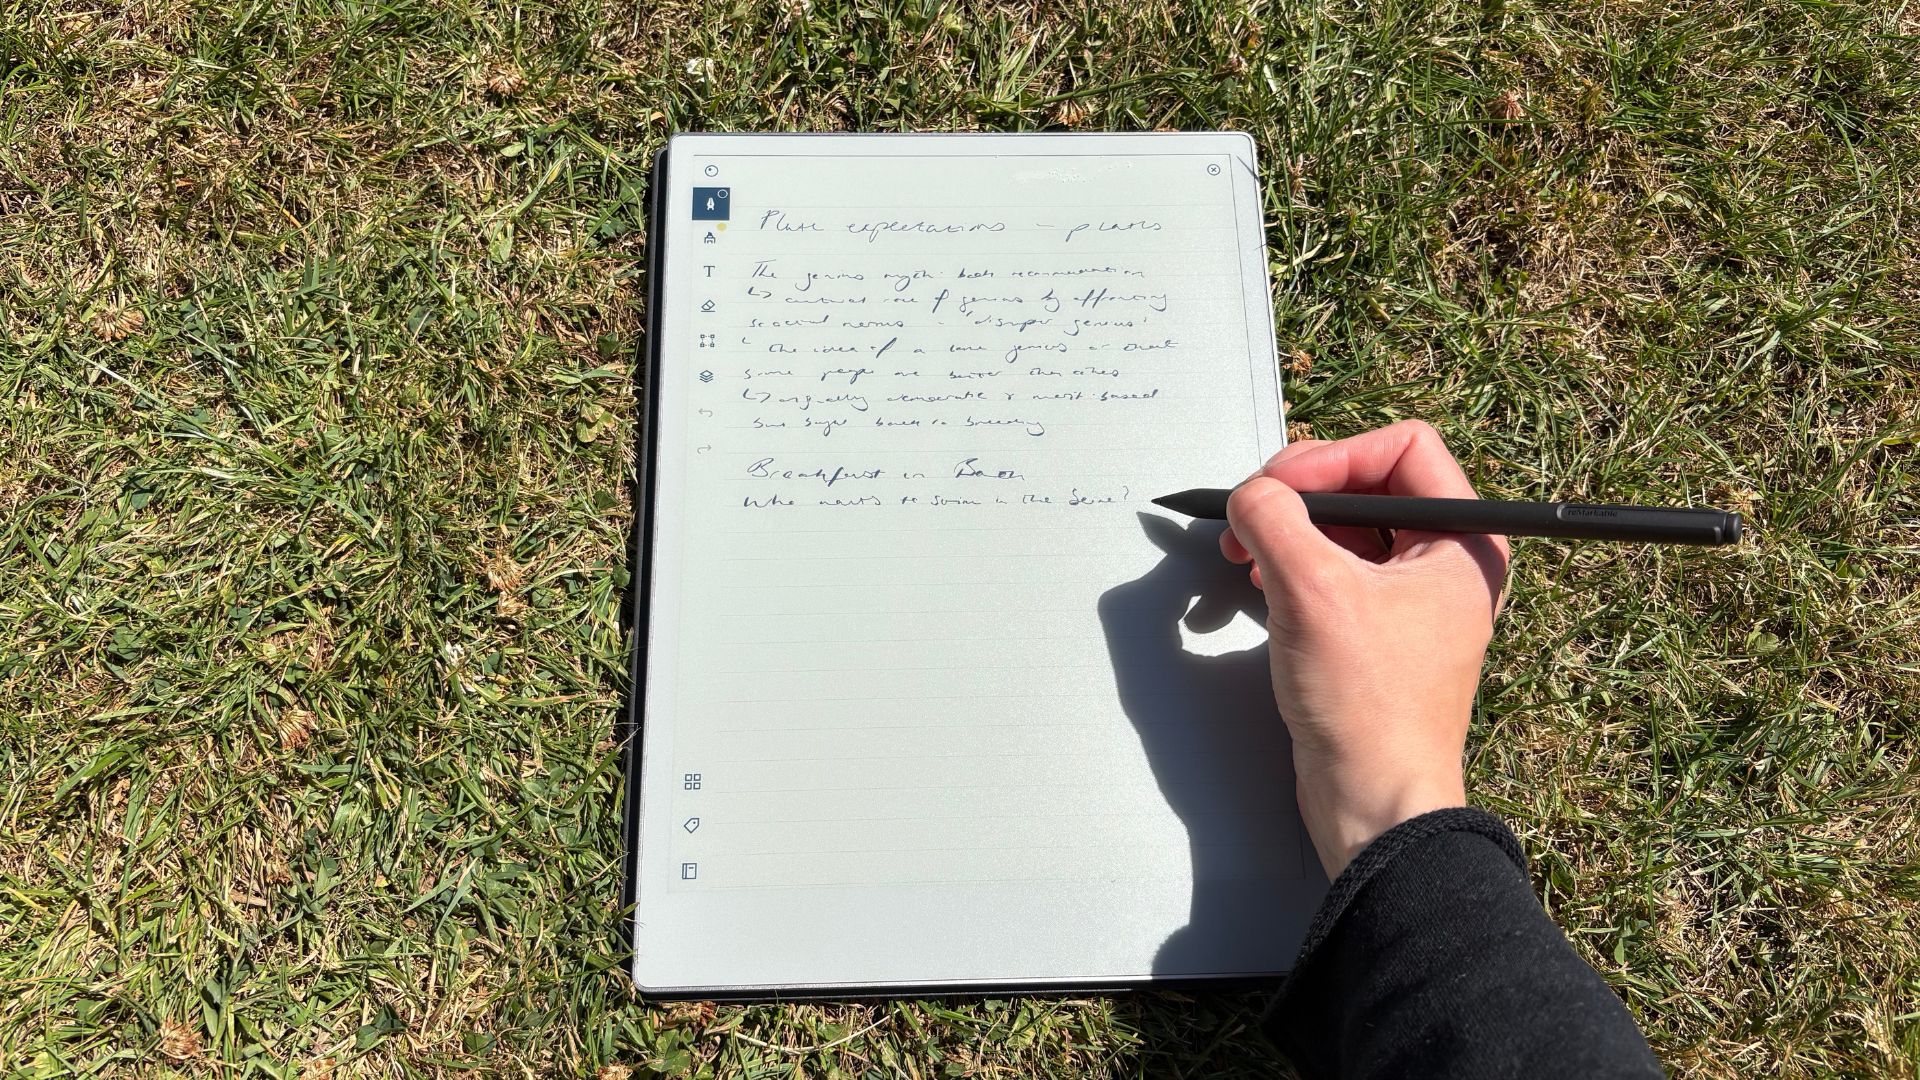 expectations -
The genius myth: book recommendation
↳ cultural role of genius by
social norms - 'disrupt genius'
↳ the idea of a lone genius or that
some people are better than others
↳ originally democratic & merit-based
but
Breakfast in
Who wants to swim in the Seine?
T
reMarkable